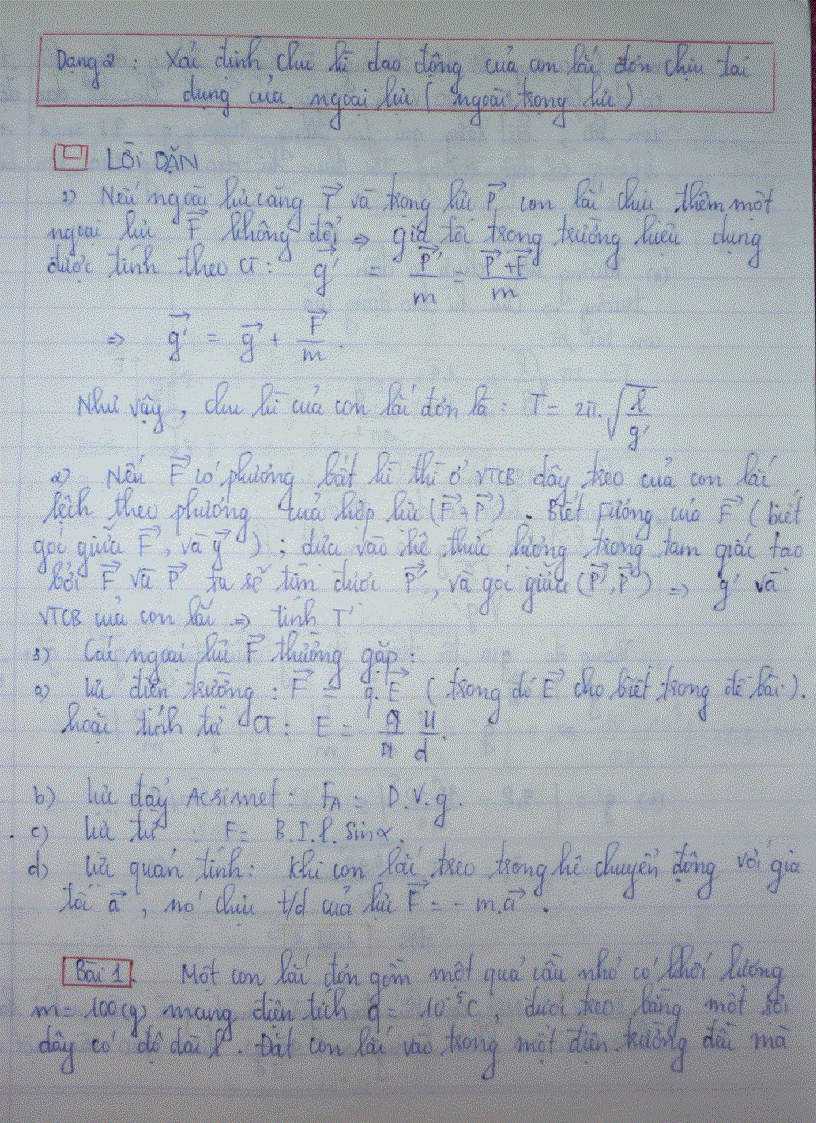 Dạng 2 : Xác định chu kì dao động của con lắc đơn chịu tác
dụng của ngoại lực ( ngoài trọng lực )
LỜI DẶN
1) Nếu ngoài lực căng T⃗ và trọng lực P⃗ con lắc chịu thêm một
ngoại lực F⃗ không đổi ⇒ gia tốc trọng trường hiệu dụng
được tính theo CT : g⃗' = P⃗'/m = (P⃗ + F⃗)/m
⇒ g⃗' = g⃗ + F⃗/m .
Như vậy , chu kì của con lắc đơn là : T = 2π.√(l/g')
2) Nếu F⃗ có phương bất kì thì ở VTCB dây treo của con lắc
lệch theo phương của hợp lực (F⃗ + P⃗) . Biết hướng của F⃗ ( biết
góc giữa F⃗ , và g⃗ ) ; dựa vào hệ thức lượng trong tam giác tạo
bởi F⃗ và P⃗ ta sẽ tìm được P⃗' , và góc giữa (P⃗', P⃗) ⇒ g' và
VTCB của con lắc ⇒ tính T'
3) Các ngoại lực F⃗ thường gặp :
a) lực điện trường : F⃗ = q.E⃗ ( trong đó E⃗ cho biết trong đề bài ) .
hoặc tính từ CT : E = U/d .
b) lực đẩy Acsimet : F_A = D.V.g .
c) lực từ : F = B.I.l.sinα .
d) lực quán tính : Khi con lắc treo trong hệ chuyển động với gia
tốc a⃗ , nó chịu t/d của lực F⃗ = - m.a⃗ .
Bài 1 . Một con lắc đơn gồm một quả cầu nhỏ có khối lượng
m = 100(g) mang điện tích q = 10⁻⁵C , được treo bằng một sợi
dây có độ dài l . Đặt con lắc vào trong một điện trường đều mà